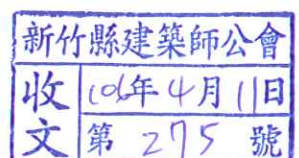 新竹縣建築師公會
收文
106年4月11日
第 275 號